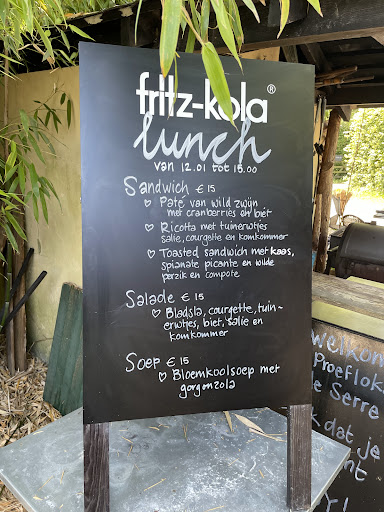 fritz-kola®
lunch
van 12.01 tot 15.00
Sandwich € 15
♡ Paté van wild zwijn
met cranberries en biet
♡ Ricotta met tuinerwtjes
salie, courgette en komkommer
♡ Toasted sandwich met kaas,
spianate picante en wilde
perzik en compote
Salade € 15
♡ Bladsla, courgette, tuin-
erwtjes, biet, salie en
komkommer
Soep € 15
♡ Bloemkoolsoep met
gorgonzola
welkom
proeflok
e Serre
k dat je